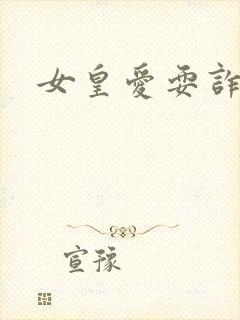 女皇愛耍詐
宣豫